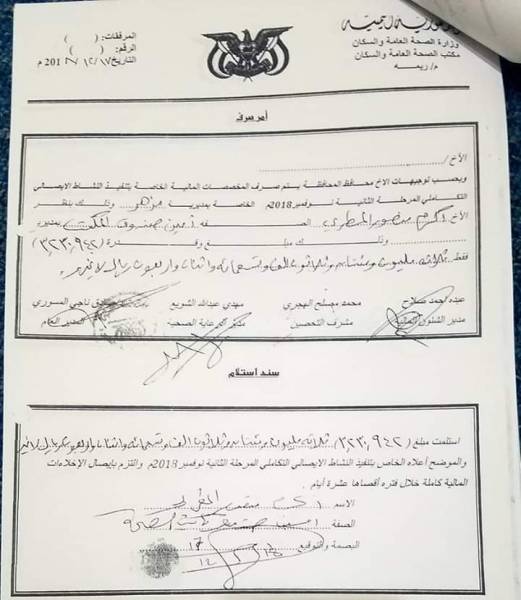 المرفقات: ( )
الرقم: ( )
التاريخ ١٧/١٢/٢٠١٨م
وزارة الصحة العامة والسكان
مكتب الصحة العامة والسكان
م/ ريمه
أمر صرف
الأخ/
وبحسب توجيهات الاخ محافظ المحافظة يتم صرف المخصصات المالية الخاصة بتنفيذ النشاط الايصالي
التكاملي المرحلة الثانية نوفمبر 2018م الخاصة بمديرية مزهر وذلك بنظر
الأخ اكرم منصور المطري الصفه أمين صندوق المكتب بمديرية
وذلك مبلغ وقدرة (٣,٢٣٠,٩٤٢)
فقط ثلاثه مليون ومئتان وثلاثون الف وتسعمائه واثنان واربعون ريال لاغير
عبده احمد صلاح
مدير الشئون المالية
محمد مصلح الهجري
مشرف التحصين
مهدي عبدالله الشويع
مدير الرعاية الصحية
صادق ناجي السوري
المدير العام
سند استلام
استلمت مبلغ (٣,٢٣٠,٩٤٢) ثلاثه مليون ومئتان وثلاثون الف وتسعمائه واثنان واربعون ريال لاغير
والموضح أعلاه الخاص بتنفيذ النشاط الايصالي التكاملي المرحلة الثانية نوفمبر 2018م والتزم بإيصال الإخلاءات
المالية كاملة خلال فتره أقصاها عشرة أيام.
الاسم / اكرم منصور المطري
الصفة / امين صندوق مكتب الصحة
البصمة والتوقيع